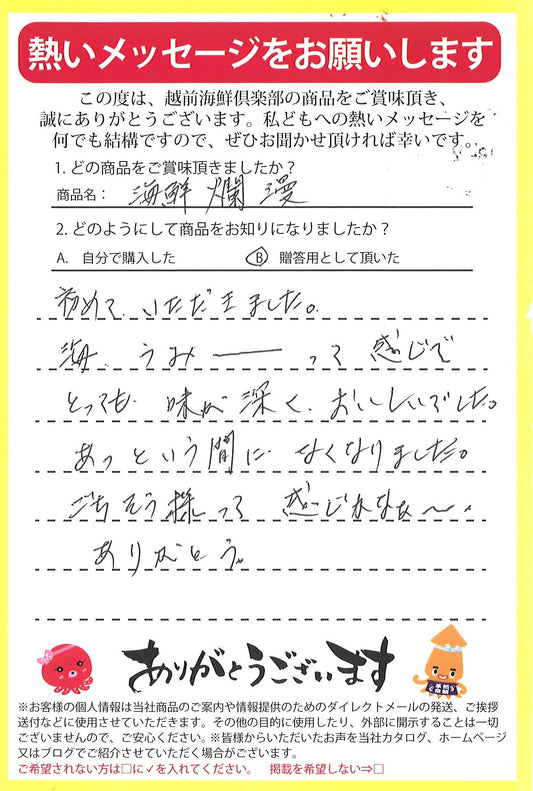 熱いメッセージをお願いします
この度は、越前海鮮倶楽部の商品をご賞味頂き、
誠にありがとうございます。私どもへの熱いメッセージを
何でも結構ですので、ぜひお聞かせ頂ければ幸いです。
1. どの商品をご賞味頂きましたか？
商品名： 海鮮爛漫
2. どのようにして商品をお知りになりましたか？
A. 自分で購入した B 贈答用として頂いた
初めて、いただきました。
海、うみーーって 感じで
とっても 味が深く、おいしいでした。
あっという間に なくなりました。
ごちそう様って 感じかなぁ〜。
ありがとう。
ありがとうございます
※お客様の個人情報は当社商品のご案内や情報提供のためのダイレクトメールの発送、ご挨拶
送付などに使用させていただきます。その他の目的に使用したり、外部に開示することは一切
ございませんので、ご安心ください。※皆様からいただいたお声を当社カタログ、ホームページ
又はブログでご紹介させていただく場合がございます。
ご希望されない方は□に✓を入れてください。 掲載を希望しない⇒□